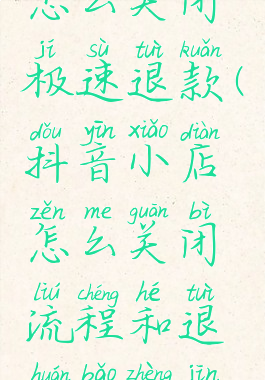 怎么关闭
jí sù tuì kuǎn
极速退款(
dǒu yīn xiǎo diàn
抖音小店
zěn me guān bì
怎么关闭
liú chéng hé tuì
流程和退
huán bǎo zhèng jīn